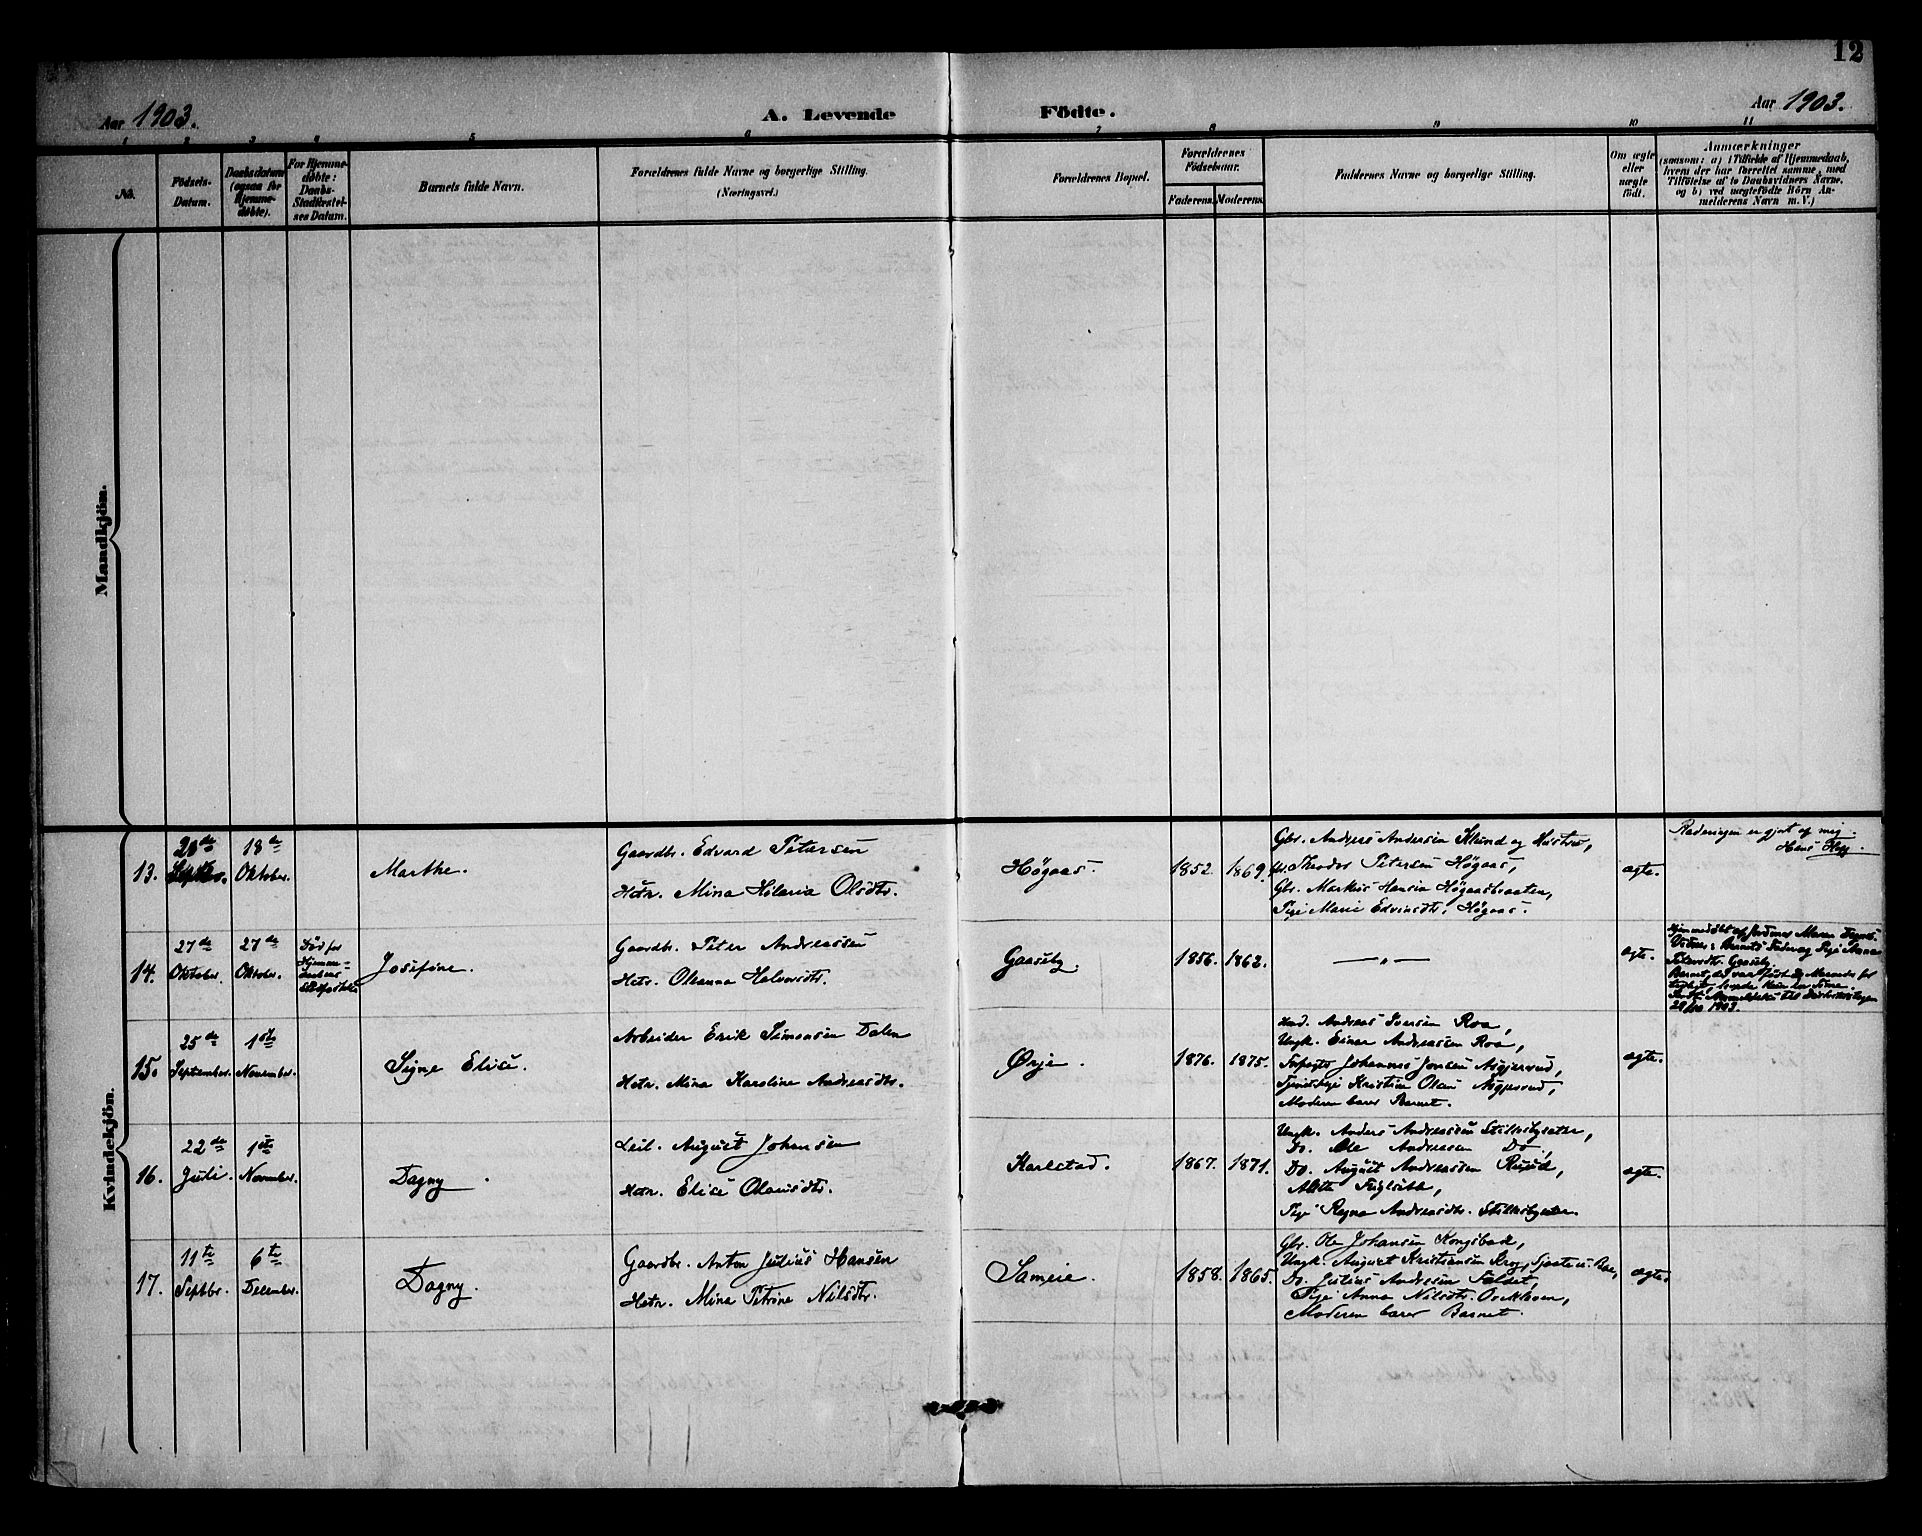 12
Aar 1903.
A. Levende Födte.
Aar 1903.
1 2 3 4 5 6 7 8 9 10 11
No.
Födsels-
Datum.
Daabsdatum
(ogsaa for
Hjemme-
døbte).
For Hjemme-
døbte:
Daabs-
Stadfæstel-
ses Datum.
Barnets fulde Navn.
Forældrenes fulde Navne og borgerlige Stilling.
(Næringsvei.)
Forældrenes Bopæl.
Forældrenes
Födselsaar.
Faderens. Moderens.
Faddernes Navne og borgerlige Stilling.
Om ægte
eller
uægte
födt.
Anmærkninger
(saasom: a) i Tilfælde af Hjemmedaab,
hvem der har forrettet samme, med
Tilføielse af to Daabsvidners Navne,
og b) ved uægtefödte Börn An-
melderens Navn m. V.)
Mandkjön.
Kvindekjön.
13.
20de
Septbr.
18de
Oktober.
Marthe.
Gaardbr. Edvard Petersen
Hstr. Mina Hilaria Olsdtr.
Høgaas.
1852. 1869.
Gbr. Andreas Andersen Klund og Hustru,
Gbr. Theodor Petersen Høgaas,
Gbr. Markus Hansen Høgaasbraaten,
Pige Marie Edvinsdtr. Høgaas.
ægte.
Raderingen er gjort af mig.
Hans
14.
27de
Oktober.
27de
Oktober.
Død før
Hjemme-
daabens
Stadfæstelse
Josefine.
Gaardbr. Peter Andreassen
Hstr. Oleanna Halvorsdtr.
Gaaseby.
1856. 1862.
— „ —
ægte.
Hjemmedøbt af Jordmor Maren
Vidner: Barnets Fader og Pige Anna
Gaaseby.
Barnet, der var født
1903.
15.
25de
September.
1ste
November.
Signe Elise.
Arbeider Erik Simonsen Dalen
Hstr. Mina Karoline Andreasdtr.
Ørje.
1876. 1875.
Andreas Iversen Roa,
Ungk. Einar Andreassen Roa,
Johannes Jonsen Asgjerrud,
Kristine Olsen Asgjerrud,
Moderen barer Barnet.
ægte.
16.
22de
Juli.
1ste
November.
Dagny.
Leil. August Johansen
Hstr. Elise Olausdtr.
Karlstad.
1867. 1871.
Ungk. Anders Andreassen Stikksbysæter,
Do. Ole Andreassen Do,
Do. August Andreassen Ruud,
Pige Regna Andreasdtr. Stikksbysæter.
ægte.
17.
11te
Septbr.
6te
December.
Dagny.
Gaardbr. Anton Julius Hansen
Hstr. Mina Petrine Nilsdtr.
Sameie.
1858. 1865.
Gbr. Ole Johansen Kongsbak,
Ungk. August Kristiansen
Do. Julius Andersen
Pige Anna Nilsdtr.
Moderen barer Barnet.
ægte.